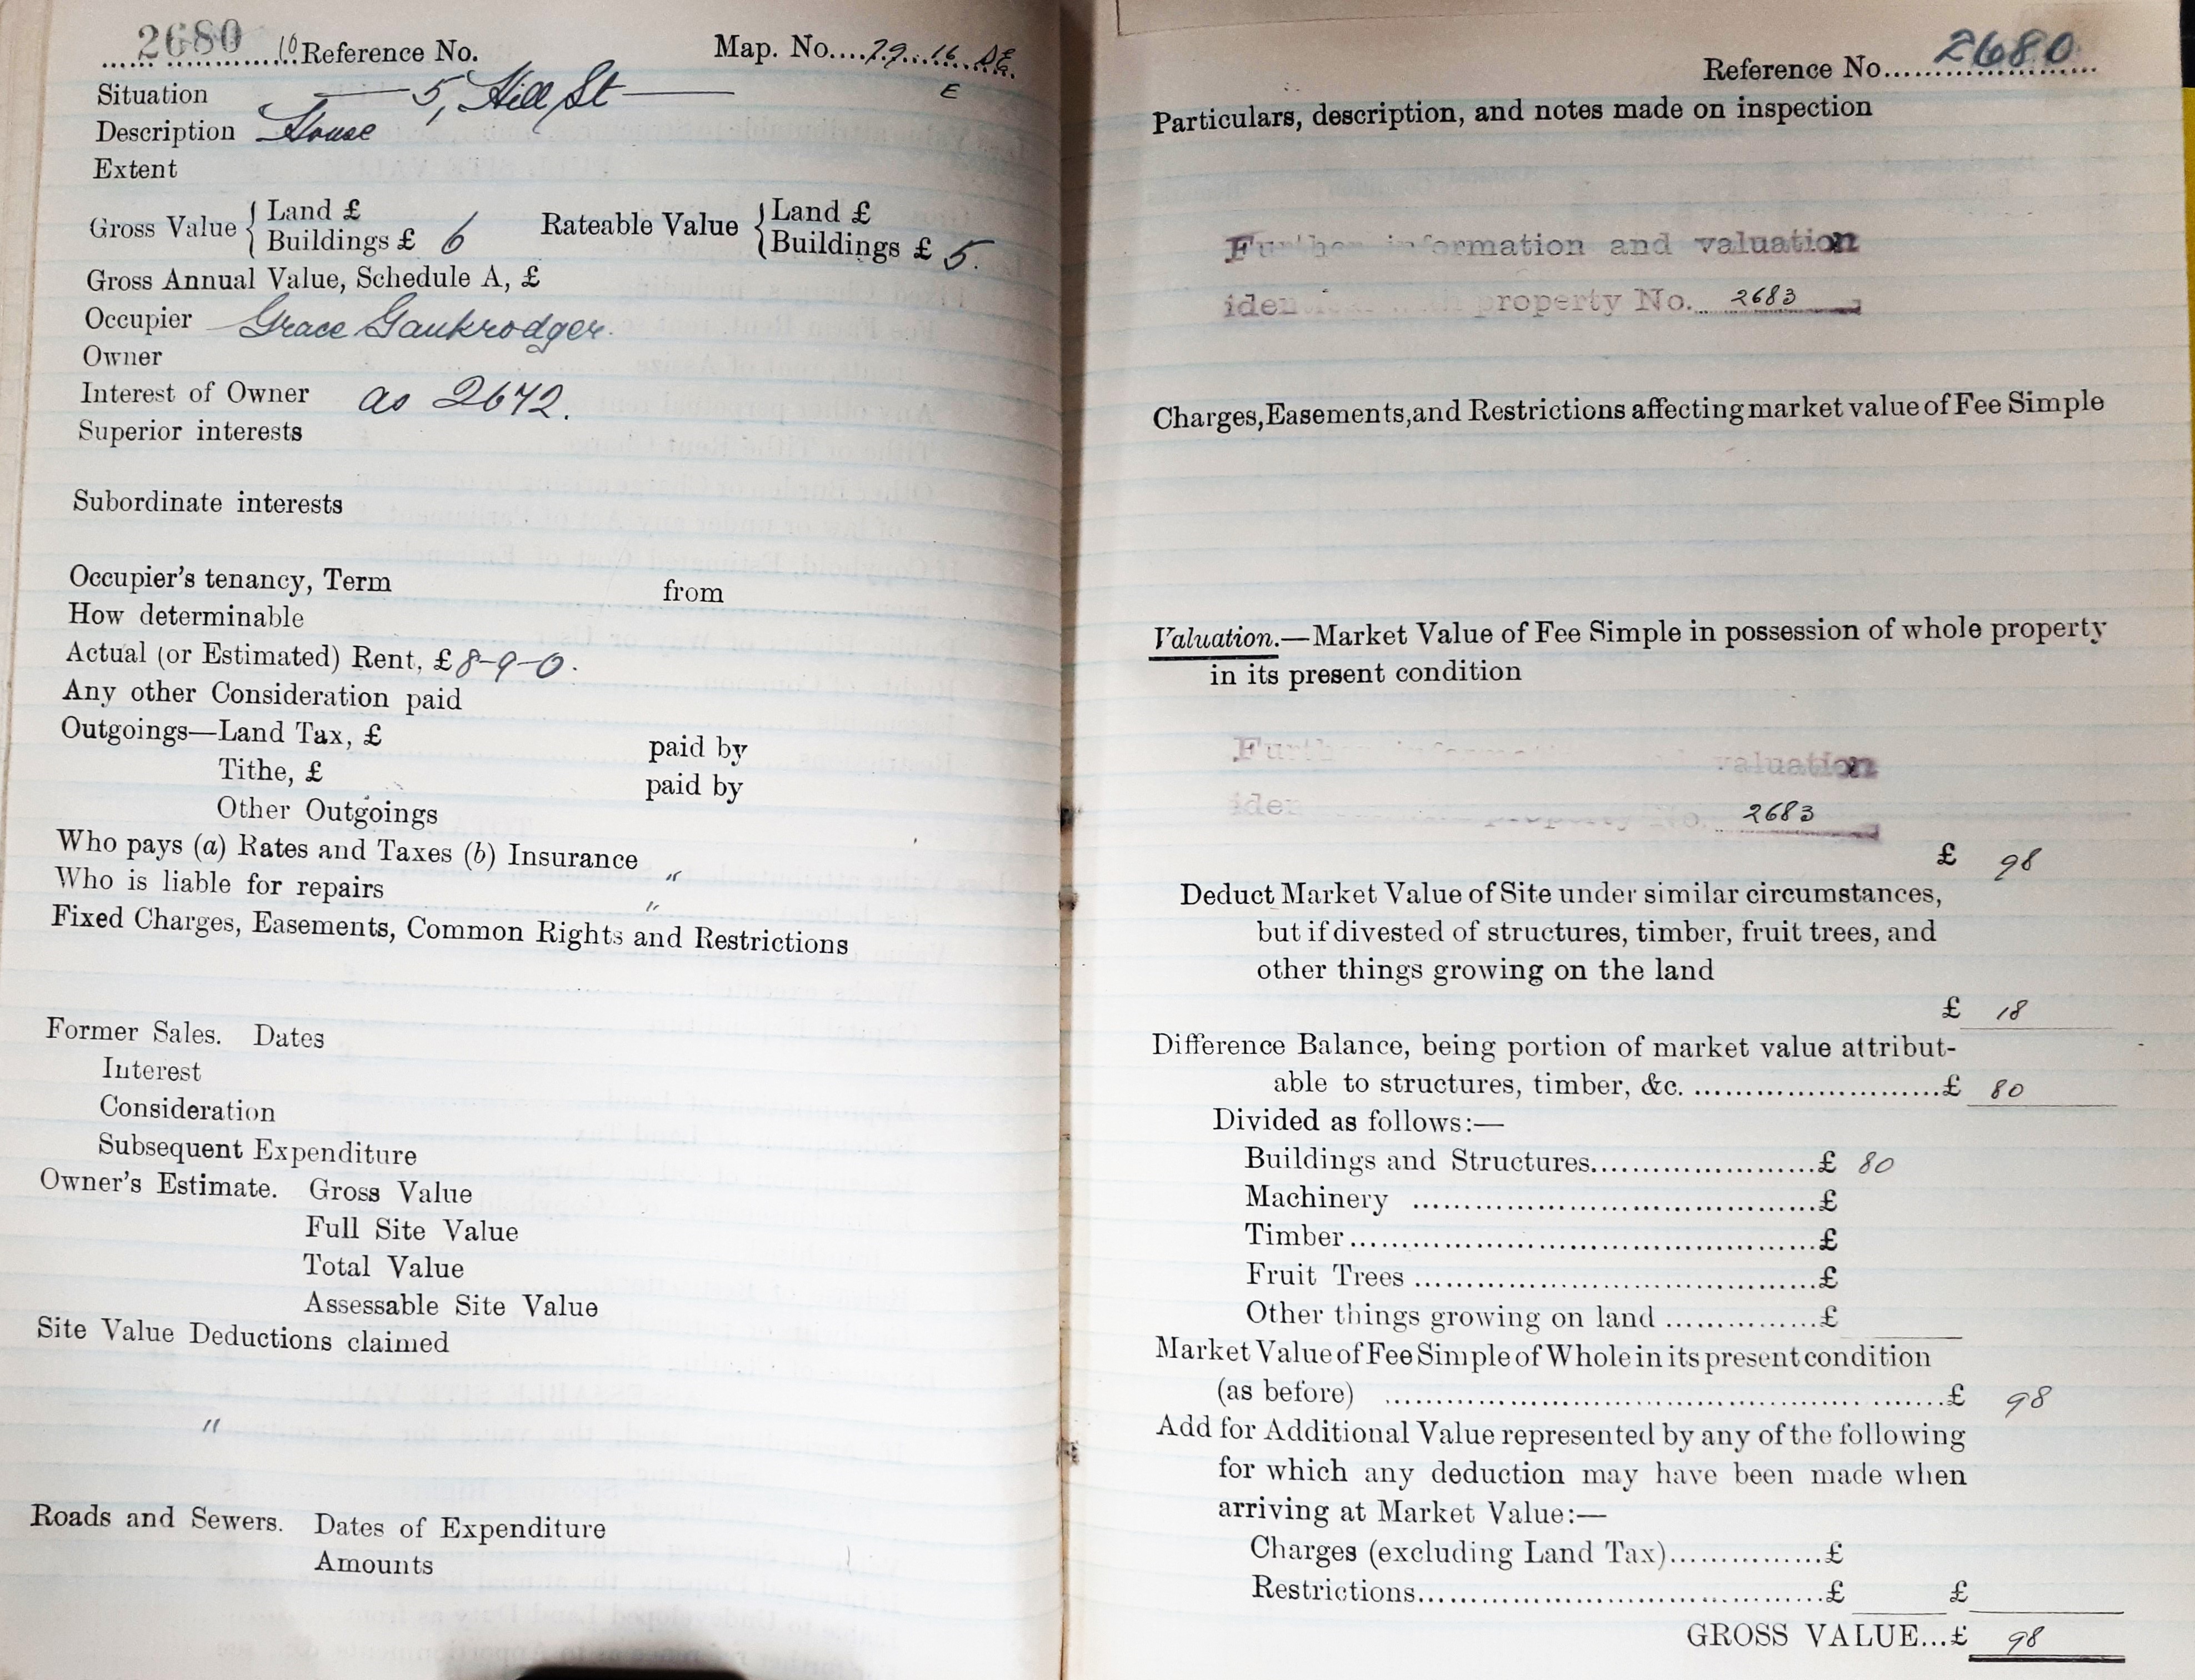 2680 10 Reference No. Map. No. 79.16 SE
E
Situation 5, Hill St
Description House
Extent
Gross Value { Land £
Buildings £ 6
Rateable Value { Land £
Buildings £ 5.
Gross Annual Value, Schedule A, £
Occupier Grace Gaukrodger.
Owner
Interest of Owner as 2642.
Superior interests
Subordinate interests
Occupier's tenancy, Term from
How determinable
Actual (or Estimated) Rent, £ 8-9-0.
Any other Consideration paid
Outgoings—Land Tax, £ paid by
Tithe, £ paid by
Other Outgoings
Who pays (a) Rates and Taxes (b) Insurance "
Who is liable for repairs "
Fixed Charges, Easements, Common Rights and Restrictions
Former Sales. Dates
Interest
Consideration
Subsequent Expenditure
Owner's Estimate. Gross Value
Full Site Value
Total Value
Assessable Site Value
Site Value Deductions claimed
"
Roads and Sewers. Dates of Expenditure
Amounts
Reference No. 2680
Particulars, description, and notes made on inspection
Further information and valuation
property No. 2683
Charges, Easements, and Restrictions affecting market value of Fee Simple
Valuation.—Market Value of Fee Simple in possession of whole property
in its present condition
valuation
property No. 2683
£ 98
Deduct Market Value of Site under similar circumstances,
but if divested of structures, timber, fruit trees, and
other things growing on the land
£ 18
Difference Balance, being portion of market value attribut-
able to structures, timber, &c. £ 80
Divided as follows:—
Buildings and Structures £ 80
Machinery £
Timber £
Fruit Trees £
Other things growing on land £
Market Value of Fee Simple of Whole in its present condition
(as before) £ 98
Add for Additional Value represented by any of the following
for which any deduction may have been made when
arriving at Market Value:—
Charges (excluding Land Tax) £
Restrictions £ £
GROSS VALUE...£ 98